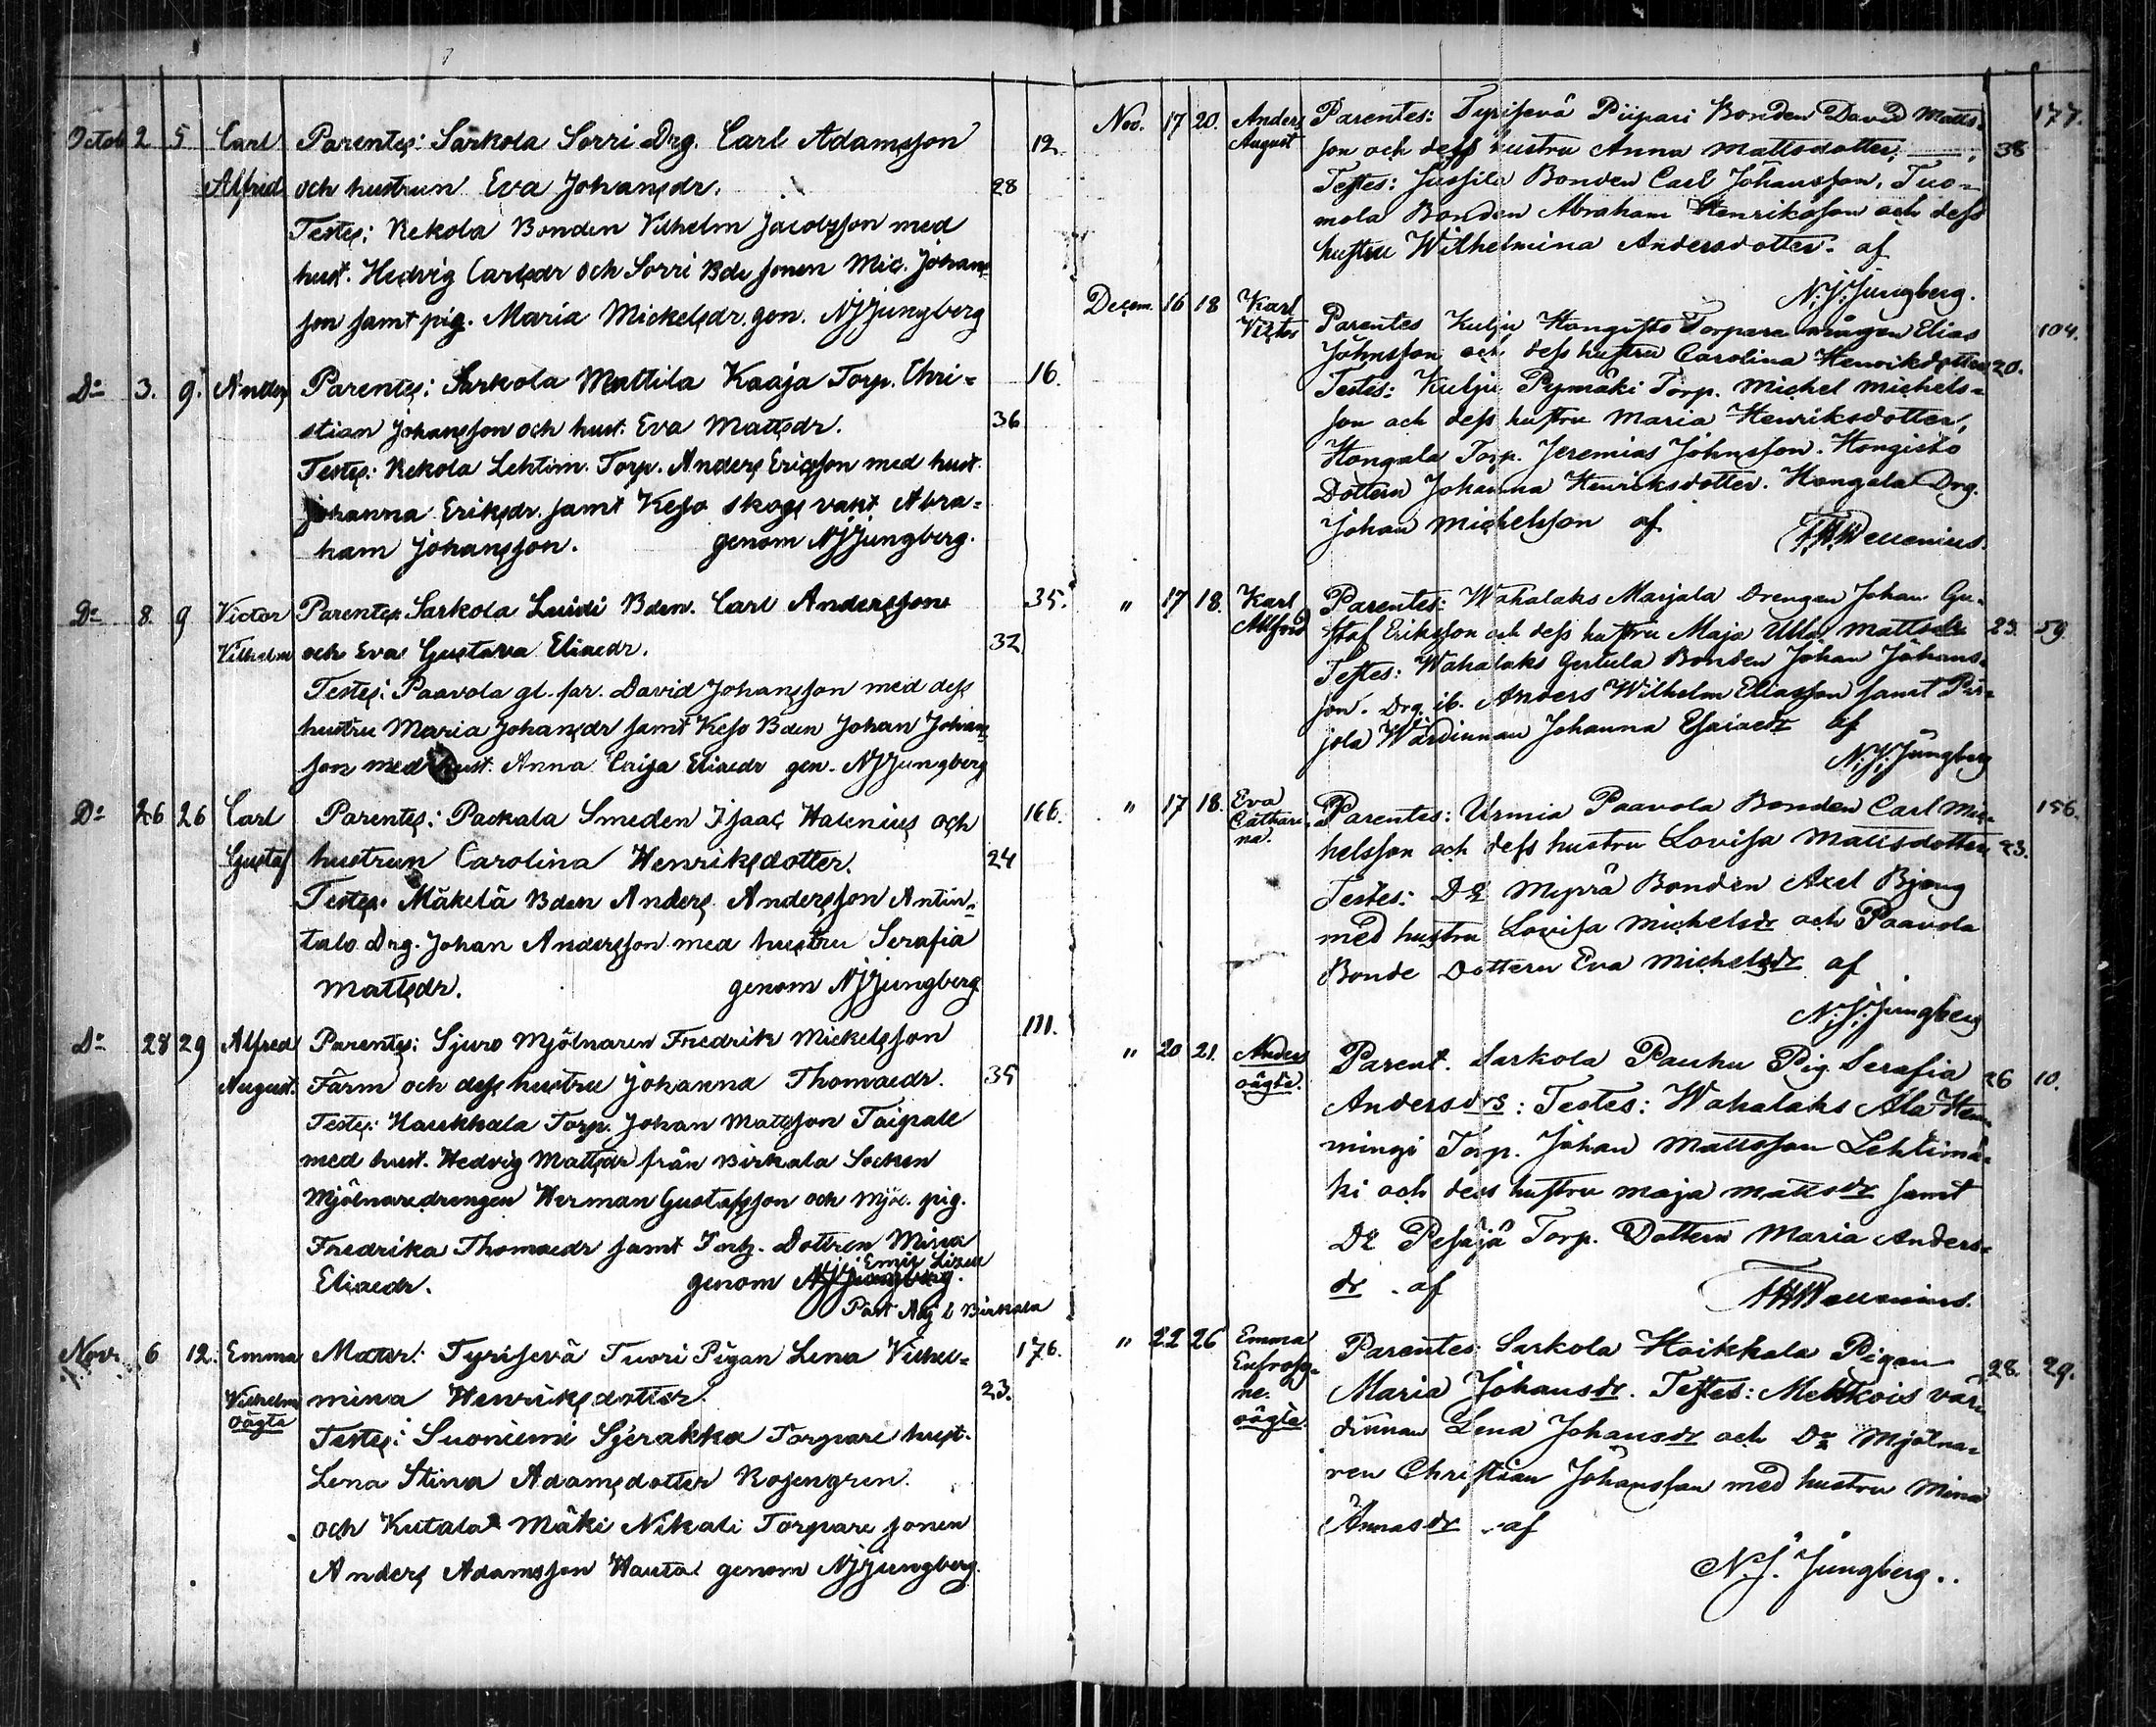 Octob 2 5 Carl Parentes: Sarkola Sorri Drg. Carl Adamsson 12
Alfred och hustrun Eva Johansdr. 28
Testes: Rekola Bonden Vilhelm Jacobsson med
hust. Hedvig Carlsdr och Sorri Bde sonen Mic. Johans-
son samt pig. Maria Mickelsdr. gen. NJJungberg
Do 3. 9. Anders Parentes: Sarkola Mattila Kaaja Torp. Chri- 16.
stian Johansson och hust. Eva Mattsdr. 36
Testes: Rekola Lehtim. Torp. Anders Ericsson med hust.
Johanna Eriksdr. samt Keso skogs vakt Abra-
ham Johansson. genom NJJungberg.
Do 8. 9 Victor Parentes Sarkola Luidi Bden. Carl Andersson 35.
Vilhelm och Eva Gustava Eliaedr. 32
Testes: Paavola gl. far. David Johansson med dess
hustru Maria Johansdr samt Keso Bden Johan Johans-
son med hust. Anna Caisa Eliaedr gen. NJJungberg
Do 26 26 Carl Parentes: Packala Smeden Isaac Halenius och 166.
Gustaf hustrun Carolina Henriksdotter. 24
Testes: Mäkelä Bden Anders Andersson Antin-
talo Drg. Johan Andersson med hustru Serafia
Mattsdr. genom NJJungberg
Do 28 29 Alfred Parentes: Sjuro Mjölnaren Fredrik Mickelsson 111.
August. Färm och dess hustru Johanna Thomaedr. 35
Testes: Haukkala Torp. Johan Mattsson Taipale
med hust. Hedvig Mattsdr från Birkala Socken
Mjölnaredrengen Herman Gustafsson och Mjöl. pig.
Fredrika Thomaedr samt Dottren Maria
Eliaedr. genom NJJungberg. Emil
Birkala
Nov. 6 12. Emma Mater: Tyrisevä Tuori Pigan Lena Vilhel- 176.
Vilhelm mina Henriksdotter. 23.
oägta Testes: Suoniemi Sjerakka Torpare hust.
Lena Stina Adamsdotter Rosengren.
och Kutala Mäki Nikali Torpare sonen
Anders Adamsson Hauta genom NJJungberg.
Nov. 17 20. Anders Parentes: Tyrisevä Piipari Bonden David Matts- 177.
August son och dess hustru Anna Mattsdotter; 38
Testes: Jussila Bonden Carl Johansson, Tuo-
mola Bonden Abraham Henriksson och dess
hustru Wilhelmina Andersdotter. af
N.J.Jungberg.
Decem. 16 18 Karl Parentes Kulju Hongisto Torpare mågen Elias 104.
Victor Johnsson och dess hustru Carolina Henriksdotter 20.
Testes: Kulju Pymäki Torp. Michel Michels-
son och dess hustru Maria Henriksdotter,
Hongala Torp. Jeremias Johnsson. Hongisto
Dottern Johanna Henriksdotter. Hongala Drg.
Johan Michelsson af
" 17 18. Karl Parentes: Wahalaks Marjala Drengen Johan Gu-
Allfred staf Eriksson och dess hustru Maja Ulla Mattsdr 23. 59
Testes: Wahalaks Gertula Bonden Johan Johans-
son. Drg. ib. Anders Wilhelm Eliasson samt Pir-
jola Wärdinnan Johanna Esaiaedr af
N.J.Jungberg
" 17 18. Eva Parentes: Urmia Paavola Bonden Carl Mic- 156.
Cathari- helsson och dess hustru Lovisa Mattsdotter 23.
na. Testes: Do Myrä Bonden Axel Bjong
med hustru Lovisa Michelsdr och Paavola
Bonde Dottern Eva Michelsdr af
N.J.Jungberg
" 20 21. Anders Parent. Sarkola Pauhu Pig. Serafia 26 10.
oägta. Andersdrs: Testes: Wahalaks Ala Hem-
mingi Torp. Johan Mattsson Lehtimä-
ki och dess hustru Maja Mattsdr samt
Do Pesäjä Torp. Dottern Maria Anders-
dr. af
" 22 26 Emma Parentes Sarkola Hoikkala Pigan 28. 29.
Eufrosy- Maria Johansdr. Testes: Mellkois vär-
ne. dinnan Lena Johansdr och Do Mjölna-
oägta. ren Christian Johansson med hustru Mina
Annasdr. af
N.J. Jungberg..